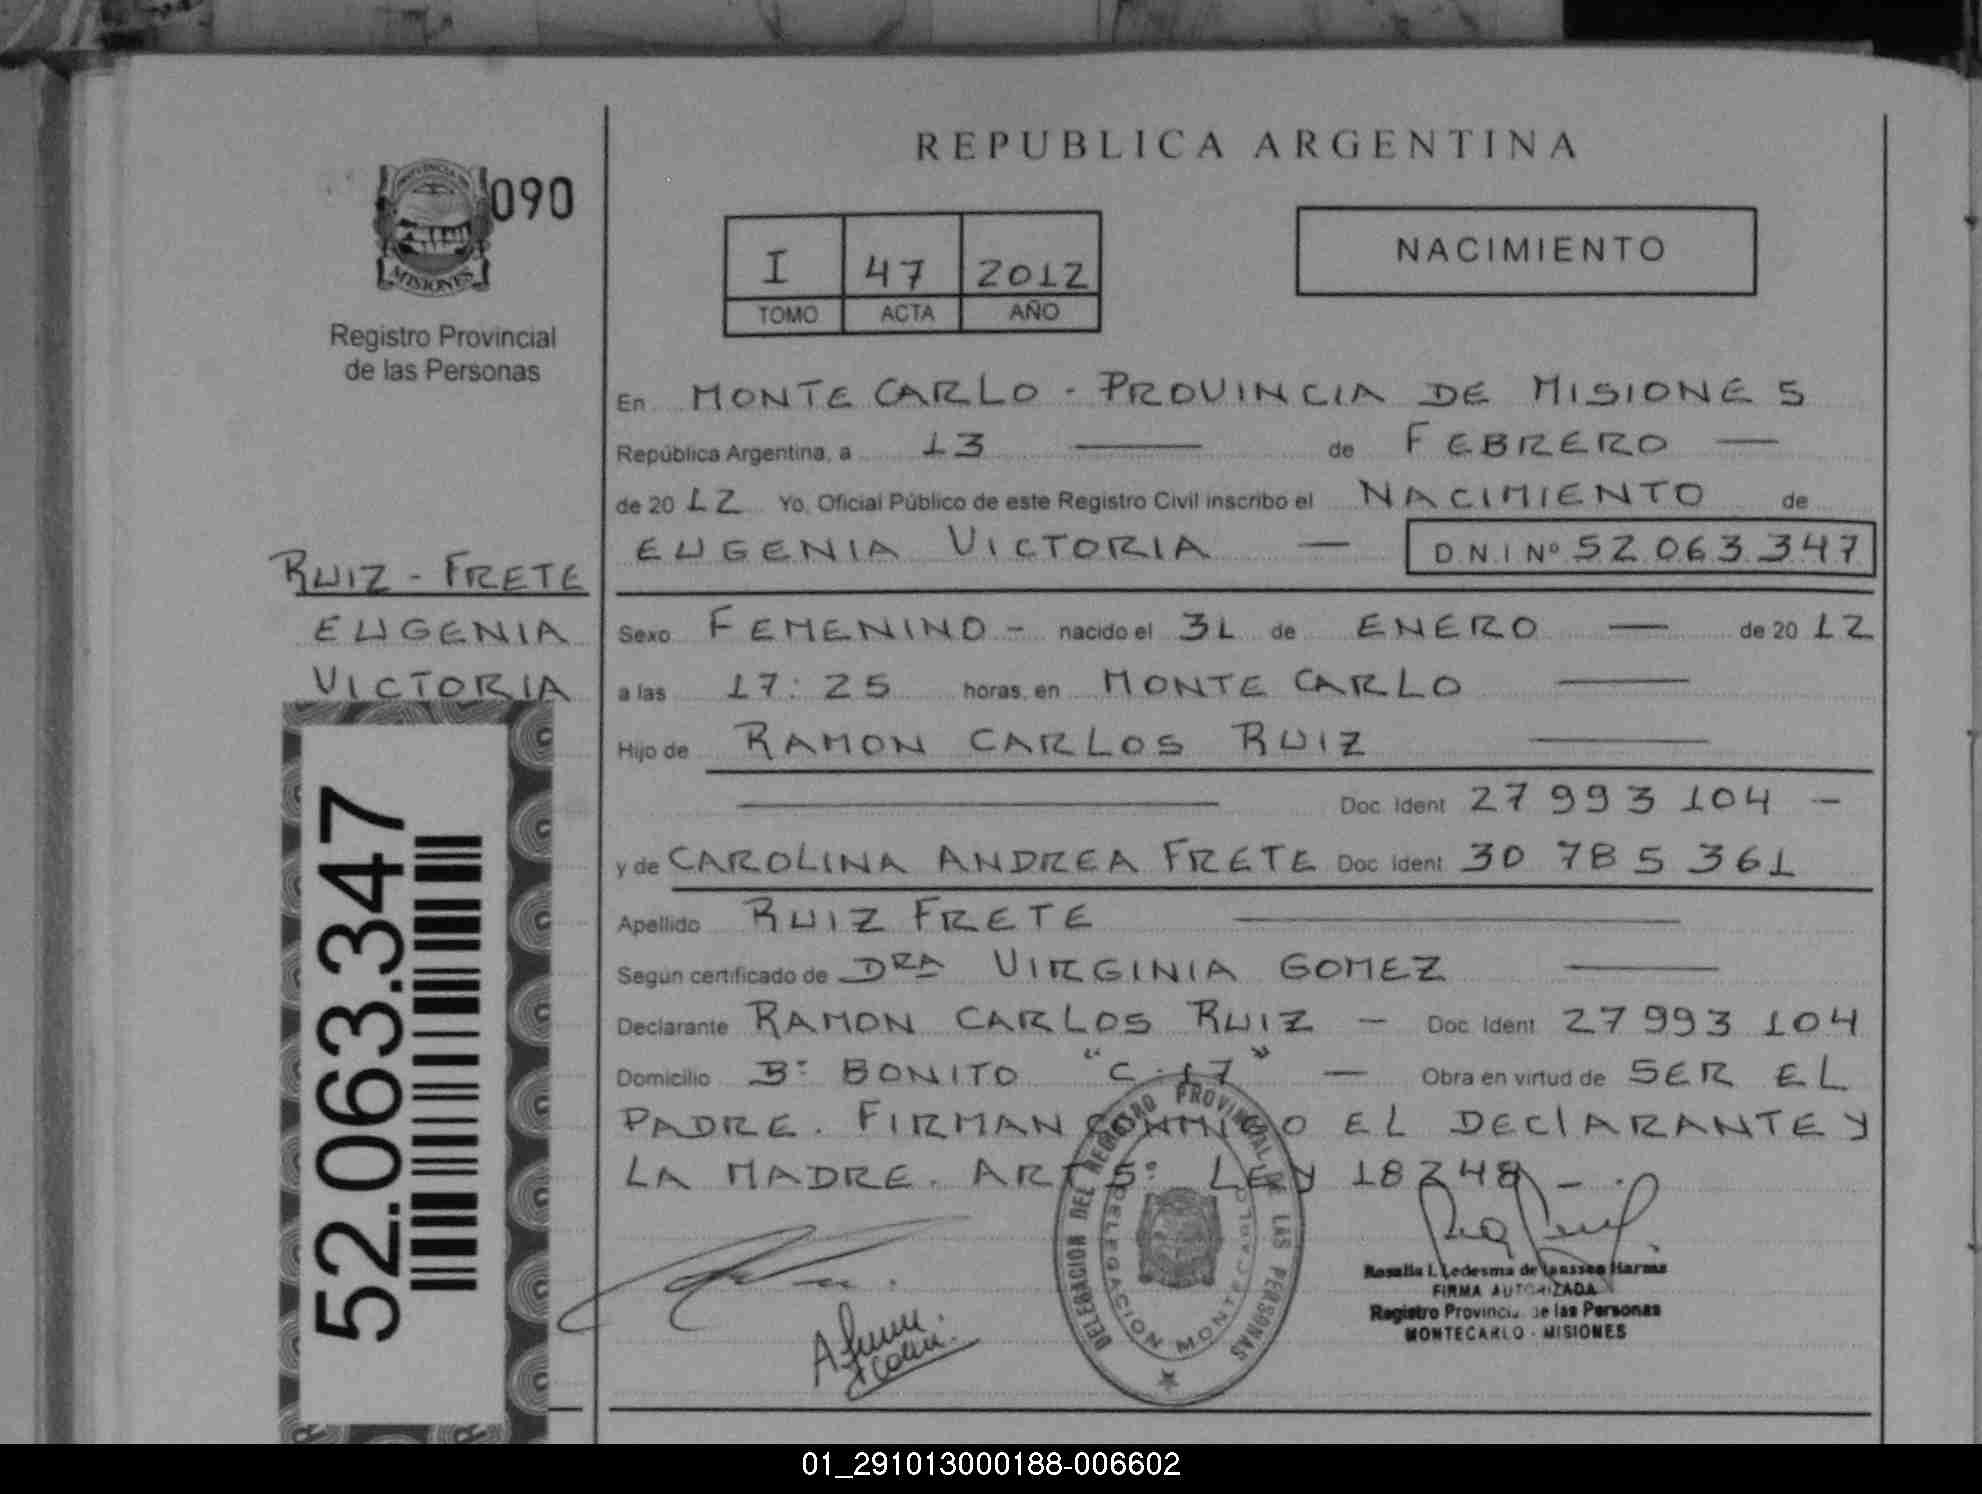 REPUBLICA ARGENTINA
PROVINCIA DE
MISIONES
090
Registro Provincial
de las Personas
I 47 2012
TOMO ACTA AÑO
NACIMIENTO
En MONTE CARLO - PROVINCIA DE MISIONES
República Argentina, a 13 — de FEBRERO —
de 2012 Yo, Oficial Público de este Registro Civil inscribo el NACIMIENTO de
EUGENIA VICTORIA — D.N.I Nº 52.063.347
RUIZ - FRETE
EUGENIA
VICTORIA
Sexo FEMENINO - nacido el 31 de ENERO — de 2012
a las 17:25 horas, en MONTE CARLO —
Hijo de RAMON CARLOS RUIZ —
— Doc. Ident 27 993 104 -
y de CAROLINA ANDREA FRETE Doc. Ident. 30 785 361
Apellido RUIZ FRETE —
Según certificado de DRA VIRGINIA GOMEZ —
Declarante RAMON CARLOS RUIZ - Doc. Ident. 27 993 104
Domicilio Bº BONITO "C-17" — Obra en virtud de SER EL
PADRE. FIRMAN CONMIGO EL DEClARANTE Y
LA MADRE. ART 5º LEY 18248 - .
52.063.347
DELEGACION DEL REGISTRO PROVINCIAL DE LAS PERSONAS
DELEGACION MONTECARLO
Rosalia I. Ledesma de Janssen Harms
FIRMA AUTORIZADA
Registro Provincial de las Personas
MONTECARLO - MISIONES
01_291013000188-006602